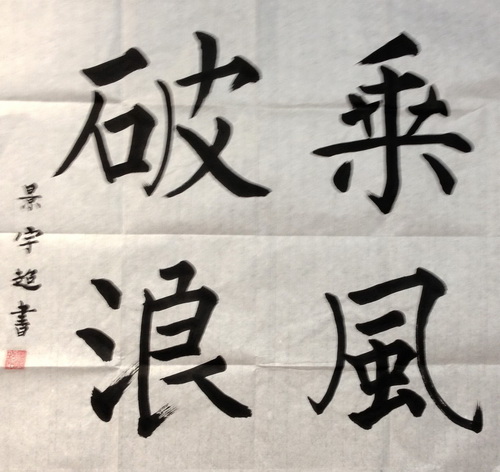 乘風
破浪
景宇超書